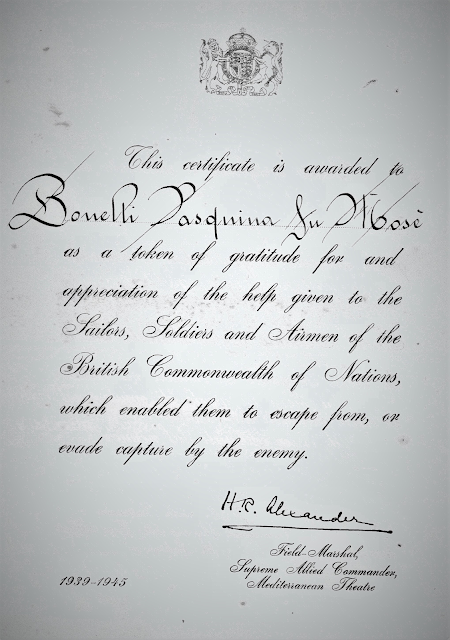 This certificate is awarded to
Bonelli Pasquina fu Mosè
as a token of gratitude for and
appreciation of the help given to the
Sailors, Soldiers and Airmen of the
British Commonwealth of Nations,
which enabled them to escape from, or
evade capture by the enemy.
H.R. Alexander
Field-Marshal,
Supreme Allied Commander,
Mediterranean Theatre
1939-1945